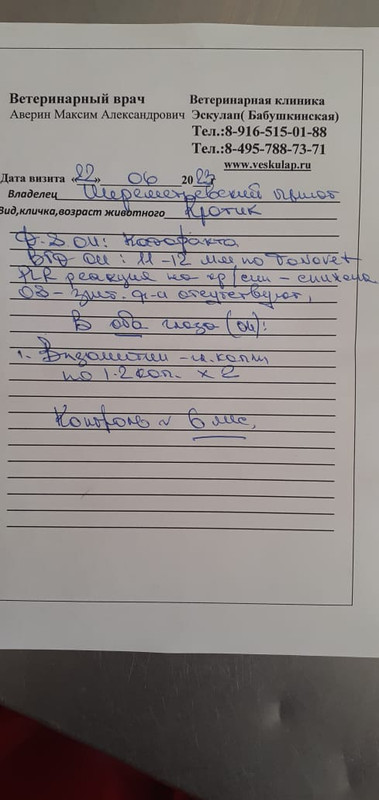 Ветеринарный врач
Ветеринарная клиника
Аверин Максим Александрович
Эскулап( Бабушкинская)
Тел.:8-916-515-01-88
Тел.:8-495-788-73-71
www.veskulap.ru
Дата визита «22» 06 2023
Владелец Шереметьевский приют
Вид,кличка,возраст животного Кротик
Ф-з OU: Катаракта
ВГД OU: 11-12 мм по TonoVet
PLR реакция на кр/син - снижена
ОЗ- зрит. ф-и отсутствуют,
В оба глаза (OU):
1. Визомитин - гл. капли
по 1-2 кап. х 2
Контроль ч 6 мес.